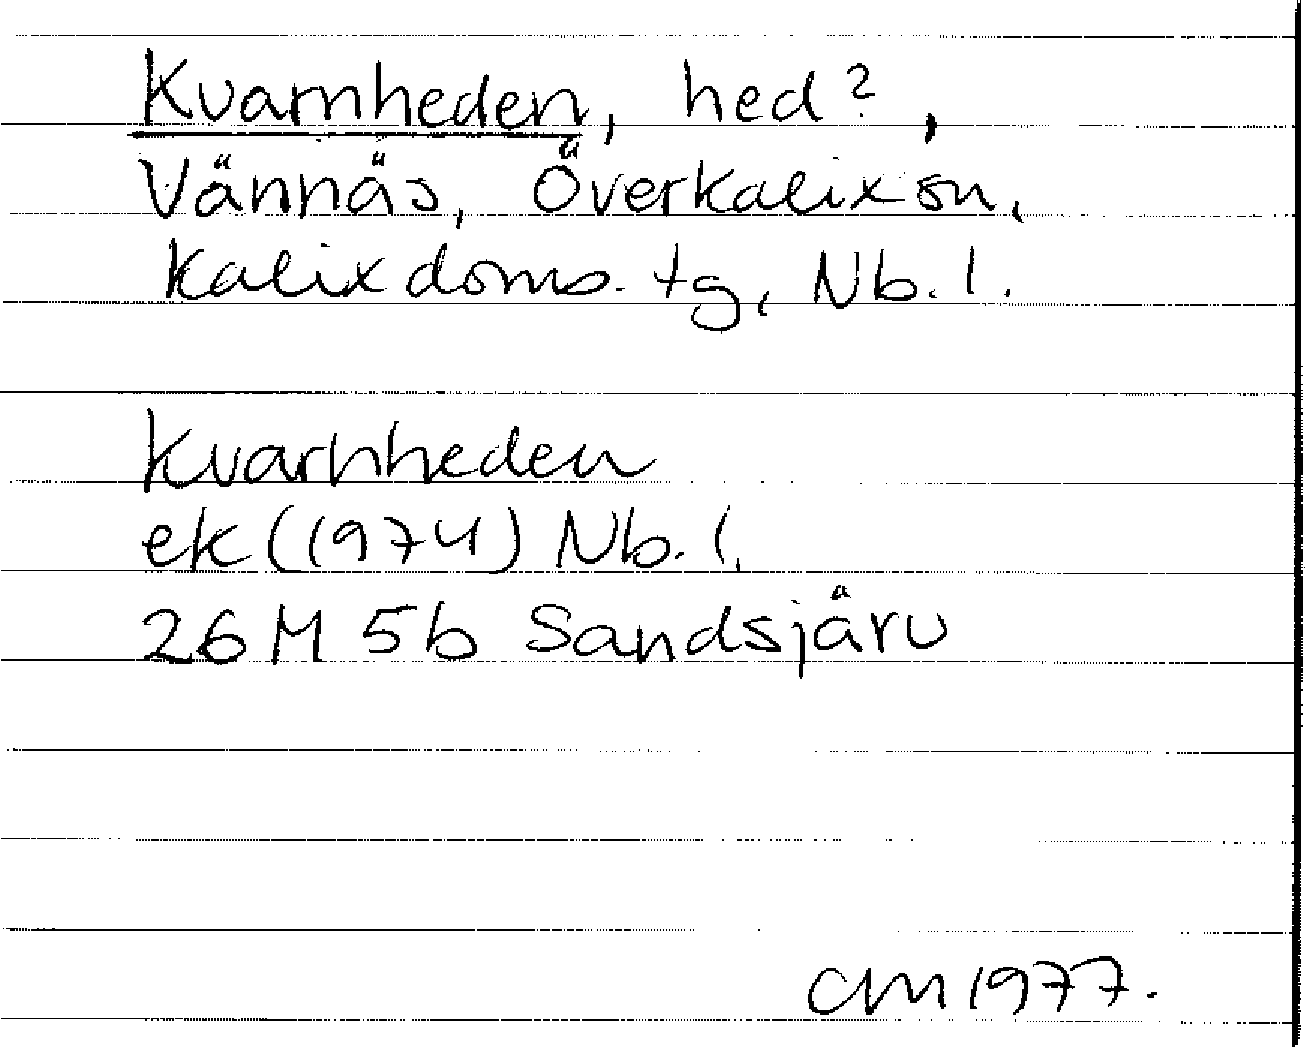 Kvarnheden, hed?,
Vännäs, Överkalix sn,
Kalix doms. tg, Nb. l.
Kvarnheden
ek (1974) Nb. l.
26 M 5b Sandsjärv
CM 1977.